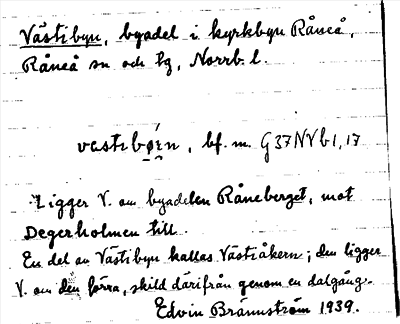 Västibyn, byadel i kyrkbyn Råneå,
Råneå sn och tg, Norrb. l.
vestɩbǿ̜ɛ̜n, bf. m. G37NVb1,17
Ligger V. om byadelen Råneberget, mot
Degerholmen till.
En del av Västibyn kallas Västiåkern; den ligger
V. om den förra, skild därifrån genom en dalgång.
Edvin Brännström 1939.